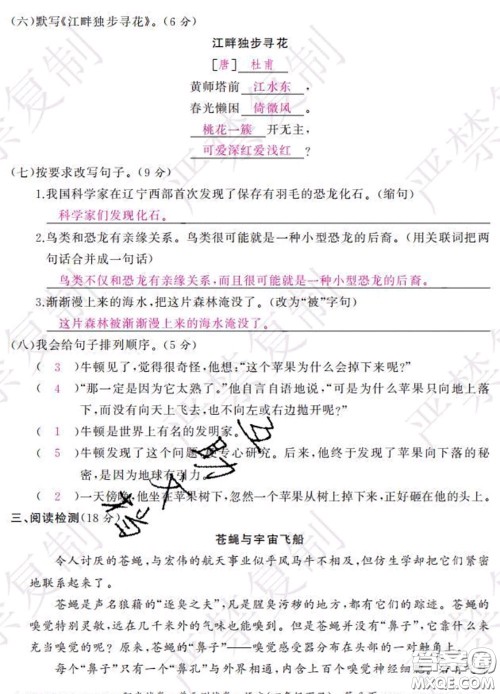 (六)默写《江畔独步寻花》。(6分)
江畔独步寻花
[唐] 杜甫
黄师塔前 江水东 ,
春光懒困 倚微风 。
桃花一簇 开无主,
可爱深红爱浅红 ?
(七)按要求改写句子。(9分)
1.我国科学家在辽宁西部首次发现了保存有羽毛的恐龙化石。(缩句)
科学家们发现化石。
2.鸟类和恐龙有亲缘关系。鸟类很可能就是一种小型恐龙的后裔。(用关联词把两
句话合并成一句话)
鸟类不仅和恐龙有亲缘关系,而且很可能就是一种小型恐龙的后裔。
3.渐渐漫上来的海水,把这片森林淹没了。(改为“被”字句)
这片森林被渐渐漫上来的海水淹没了。
(八)我会给句子排列顺序。(5分)
( 3 )牛顿见了,觉得很奇怪,他想:“这个苹果为什么会掉下来呢?”
( 4 )“那一定是因为它太熟了。”他自言自语地说,“可是为什么苹果只向地上落
下,而没有向天上飞去,也不向左或右边抛开呢?”
( 1 )牛顿是世界上有名的发明家。
( 5 )牛顿发现了这个问题,便专心研究。后来,他终于发现了苹果向下落的秘
密,是因为地球有引力。
( 2 )一天傍晚,他坐在苹果树下,忽然一个苹果从树上掉下来,正好砸在他的头上。
三、阅读检测(18分)
苍蝇与宇宙飞船
令人讨厌的苍蝇,与宏伟的航天事业似乎风马牛不相及,但仿生学却把它们紧密
地联系起来了。
苍蝇是声名狼藉的“逐臭之夫”,凡是腥臭污秽的地方,都有它们的踪迹。苍蝇的
嗅觉特别灵敏,远在几千米外的气味也能嗅到。但是苍蝇并没有“鼻子”,它靠什么来
充当嗅觉的呢?原来,苍蝇的“鼻子”——嗅觉感受器分布在头部的一对触角上。
每个“鼻子”只有一个“鼻孔”与外界相通,内含上百个嗅觉神经细胞。
严禁复制